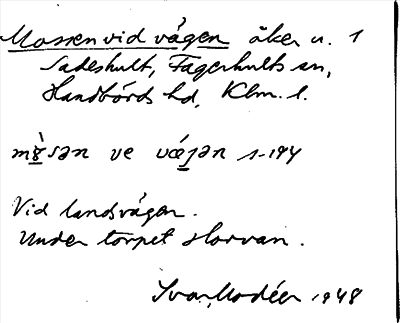 Mossen vid vägen åker u. 1
Sadeshult, Fagerhults sn,
Handbörds hd, Klm. l.
vid landsvägen.
Under torpet Horvan.
Ivar Modéer 1948